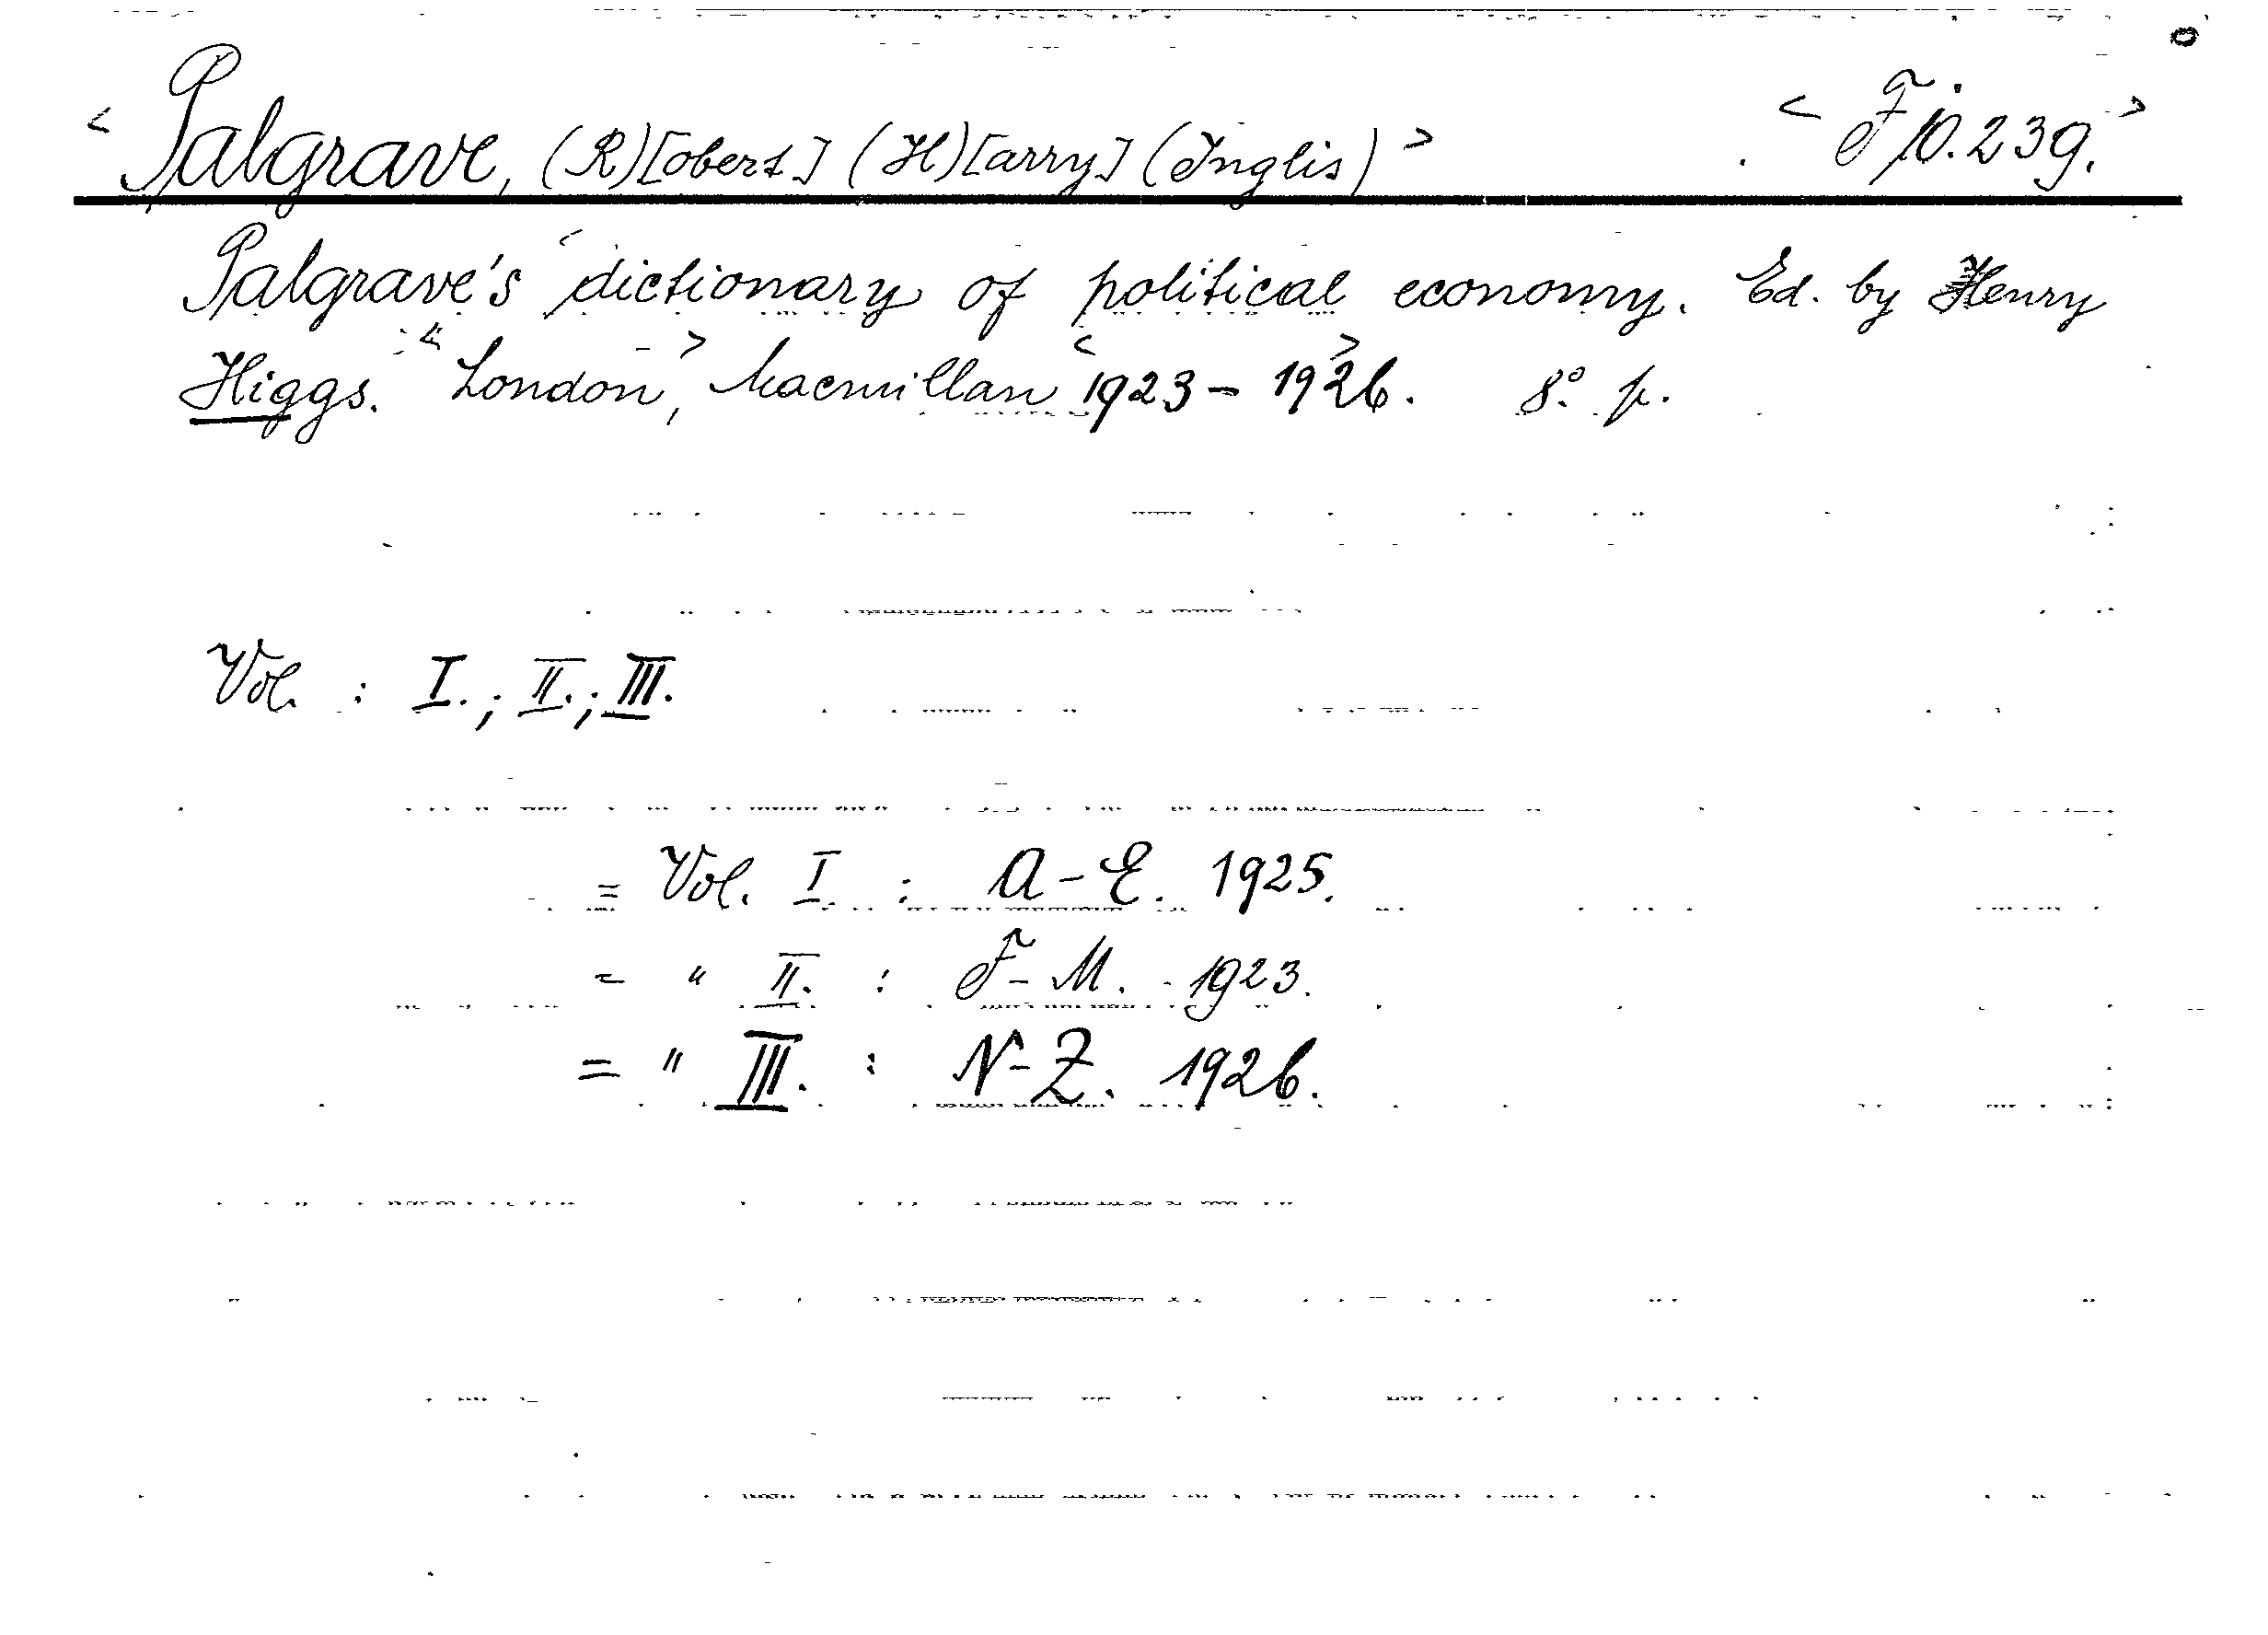 < Palgrave, (R)[obert] (H)[arry] (Inglis) > < F 10.239. >
Palgrave's dictionary of political economy. Ed. by Henry
Higgs. London, Macmillan 1923 - 1926. 8° p.
Vol. : I.; II.; III.
= Vol. I : A - E. 1925.
= " II. : F - M. 1923.
= " III. : N - Z. 1926.